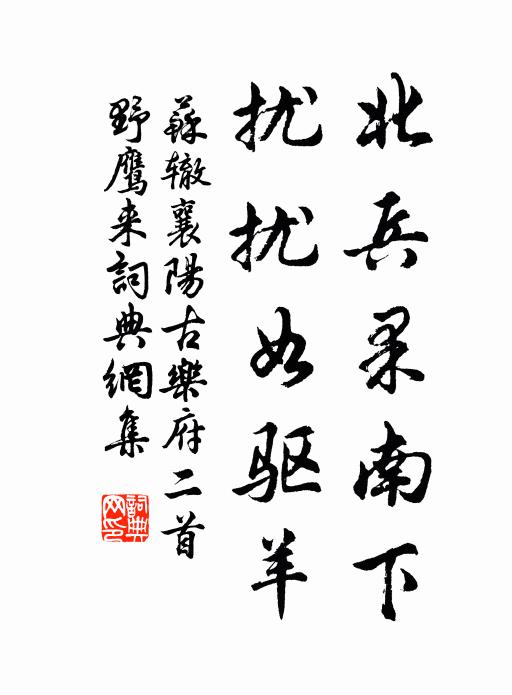 北兵果南下
扰扰如驱羊
蘇辙襄陽古樂府二首
野鹰来詞典網集
詞典网印